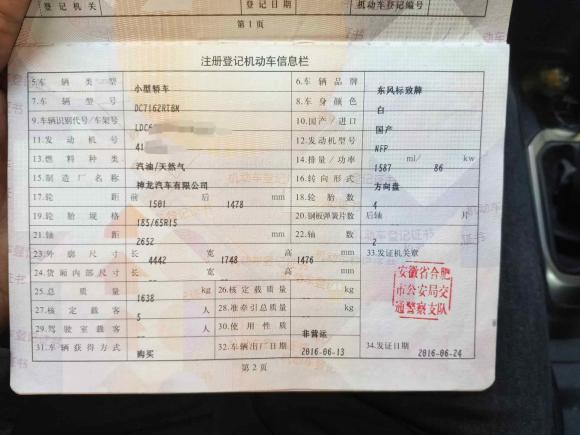 登记机关 登记日期 机动车登记编号
第1页
注册登记机动车信息栏
5.车辆类型 小型轿车 6.车辆品牌 东风标致牌
7.车辆型号 DC7162RTBM 8.车身颜色 白
9.车辆识别代号/车架号 LDC6 10.国产/进口 国产
11.发动机号 41 12.发动机型号 NFP
13.燃料种类 汽油/天然气 14.排量/功率 1587 ml/ 86 kw
15.制造厂名称 神龙汽车有限公司 16.转向形式 方向盘
17.轮距 前 1501 后 1478 mm 18.轮胎数 4
19.轮胎规格 185/65R15 20.钢板弹簧片数 后轴 片
21.轴距 2652 mm 22.轴数 2
23.外廓尺寸 长 4442 宽 1748 高 1476 mm 33.发证机关章
24.货厢内部尺寸 长 宽 高 mm
安徽省合肥
市公安局交
通警察支队
25.总质量 1638 kg 26.核定载质量 kg
27.核定载客 5 人 28.准牵引总质量 kg
29.驾驶室载客 人 30.使用性质 非营运
31.车辆获得方式 购买 32.车辆出厂日期 2016-06-13 34.发证日期 2016-06-24
第2页